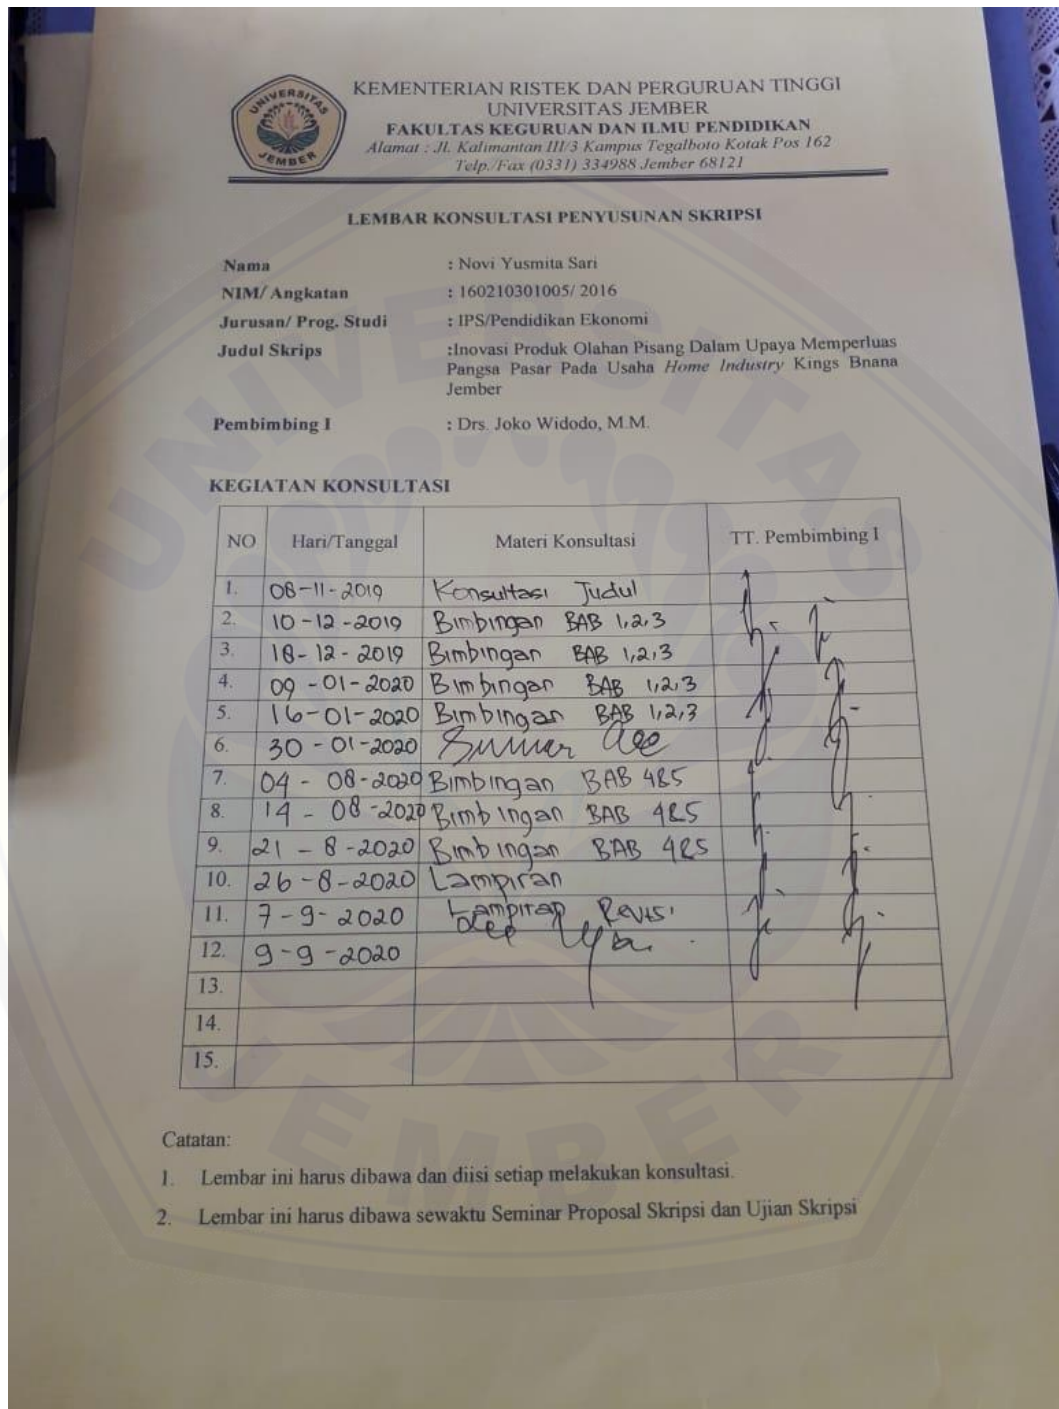 UNIVERSITAS
JEMBER
KEMENTERIAN RISTEK DAN PERGURUAN TINGGI
UNIVERSITAS JEMBER
FAKULTAS KEGURUAN DAN ILMU PENDIDIKAN
Alamat : Jl. Kalimantan III/3 Kampus Tegalboto Kotak Pos 162
Telp./Fax (0331) 334988 Jember 68121
LEMBAR KONSULTASI PENYUSUNAN SKRIPSI
Nama : Novi Yusmita Sari
NIM/ Angkatan : 160210301005/ 2016
Jurusan/ Prog. Studi : IPS/Pendidikan Ekonomi
Judul Skrips :Inovasi Produk Olahan Pisang Dalam Upaya Memperluas
Pangsa Pasar Pada Usaha Home Industry Kings Bnana
Jember
Pembimbing I : Drs. Joko Widodo, M.M.
KEGIATAN KONSULTASI
NO Hari/Tanggal Materi Konsultasi TT. Pembimbing I
1. 08-11-2019 Konsultasi Judul
2. 10-12-2019 Bimbingan BAB 1,2,3
3. 18-12-2019 Bimbingan BAB 1,2,3
4. 09-01-2020 Bimbingan BAB 1,2,3
5. 16-01-2020 Bimbingan BAB 1,2,3
6. 30-01-2020
7. 04-08-2020 Bimbingan BAB 4&5
8. 14-08-2020 Bimbingan BAB 4&5
9. 21-8-2020 Bimbingan BAB 4&5
10. 26-8-2020 Lampiran
11. 7-9-2020 Lampiran Revisi
12. 9-9-2020
13.
14.
15.
Catatan:
1. Lembar ini harus dibawa dan diisi setiap melakukan konsultasi.
2. Lembar ini harus dibawa sewaktu Seminar Proposal Skripsi dan Ujian Skripsi
UNIVERSITAS
JEMBER